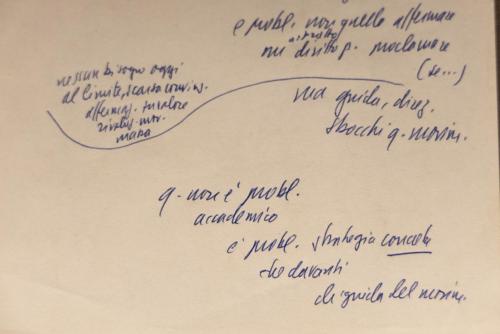 è probl. non quello affermare
astratto
un diritto p. proclamare
(se...)
nessun bisogno oggi
al limite, scarsa convins.
affermaz. su valore
rivoluz. mov.
massa
ma guida, direz.
sbocchi q. movim.
q. non è probl.
accademico
è probl. strategia concreta
sta davanti
di guida del movim.